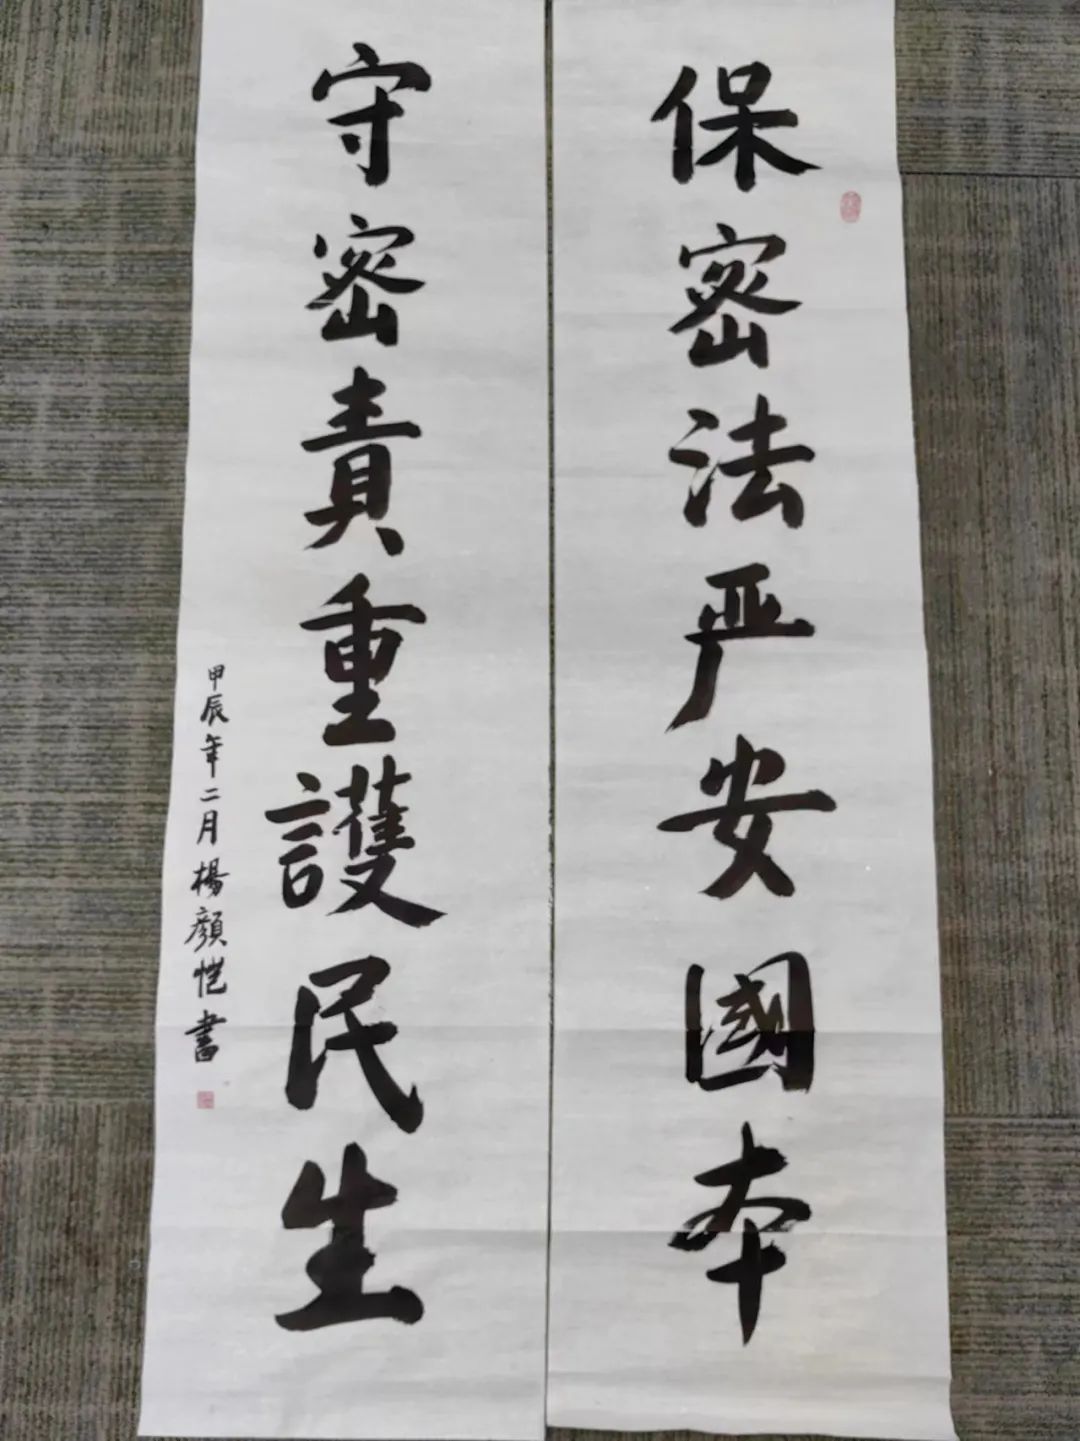 保密法严安國本
守密責重護民生
甲辰年二月楊顏恺書